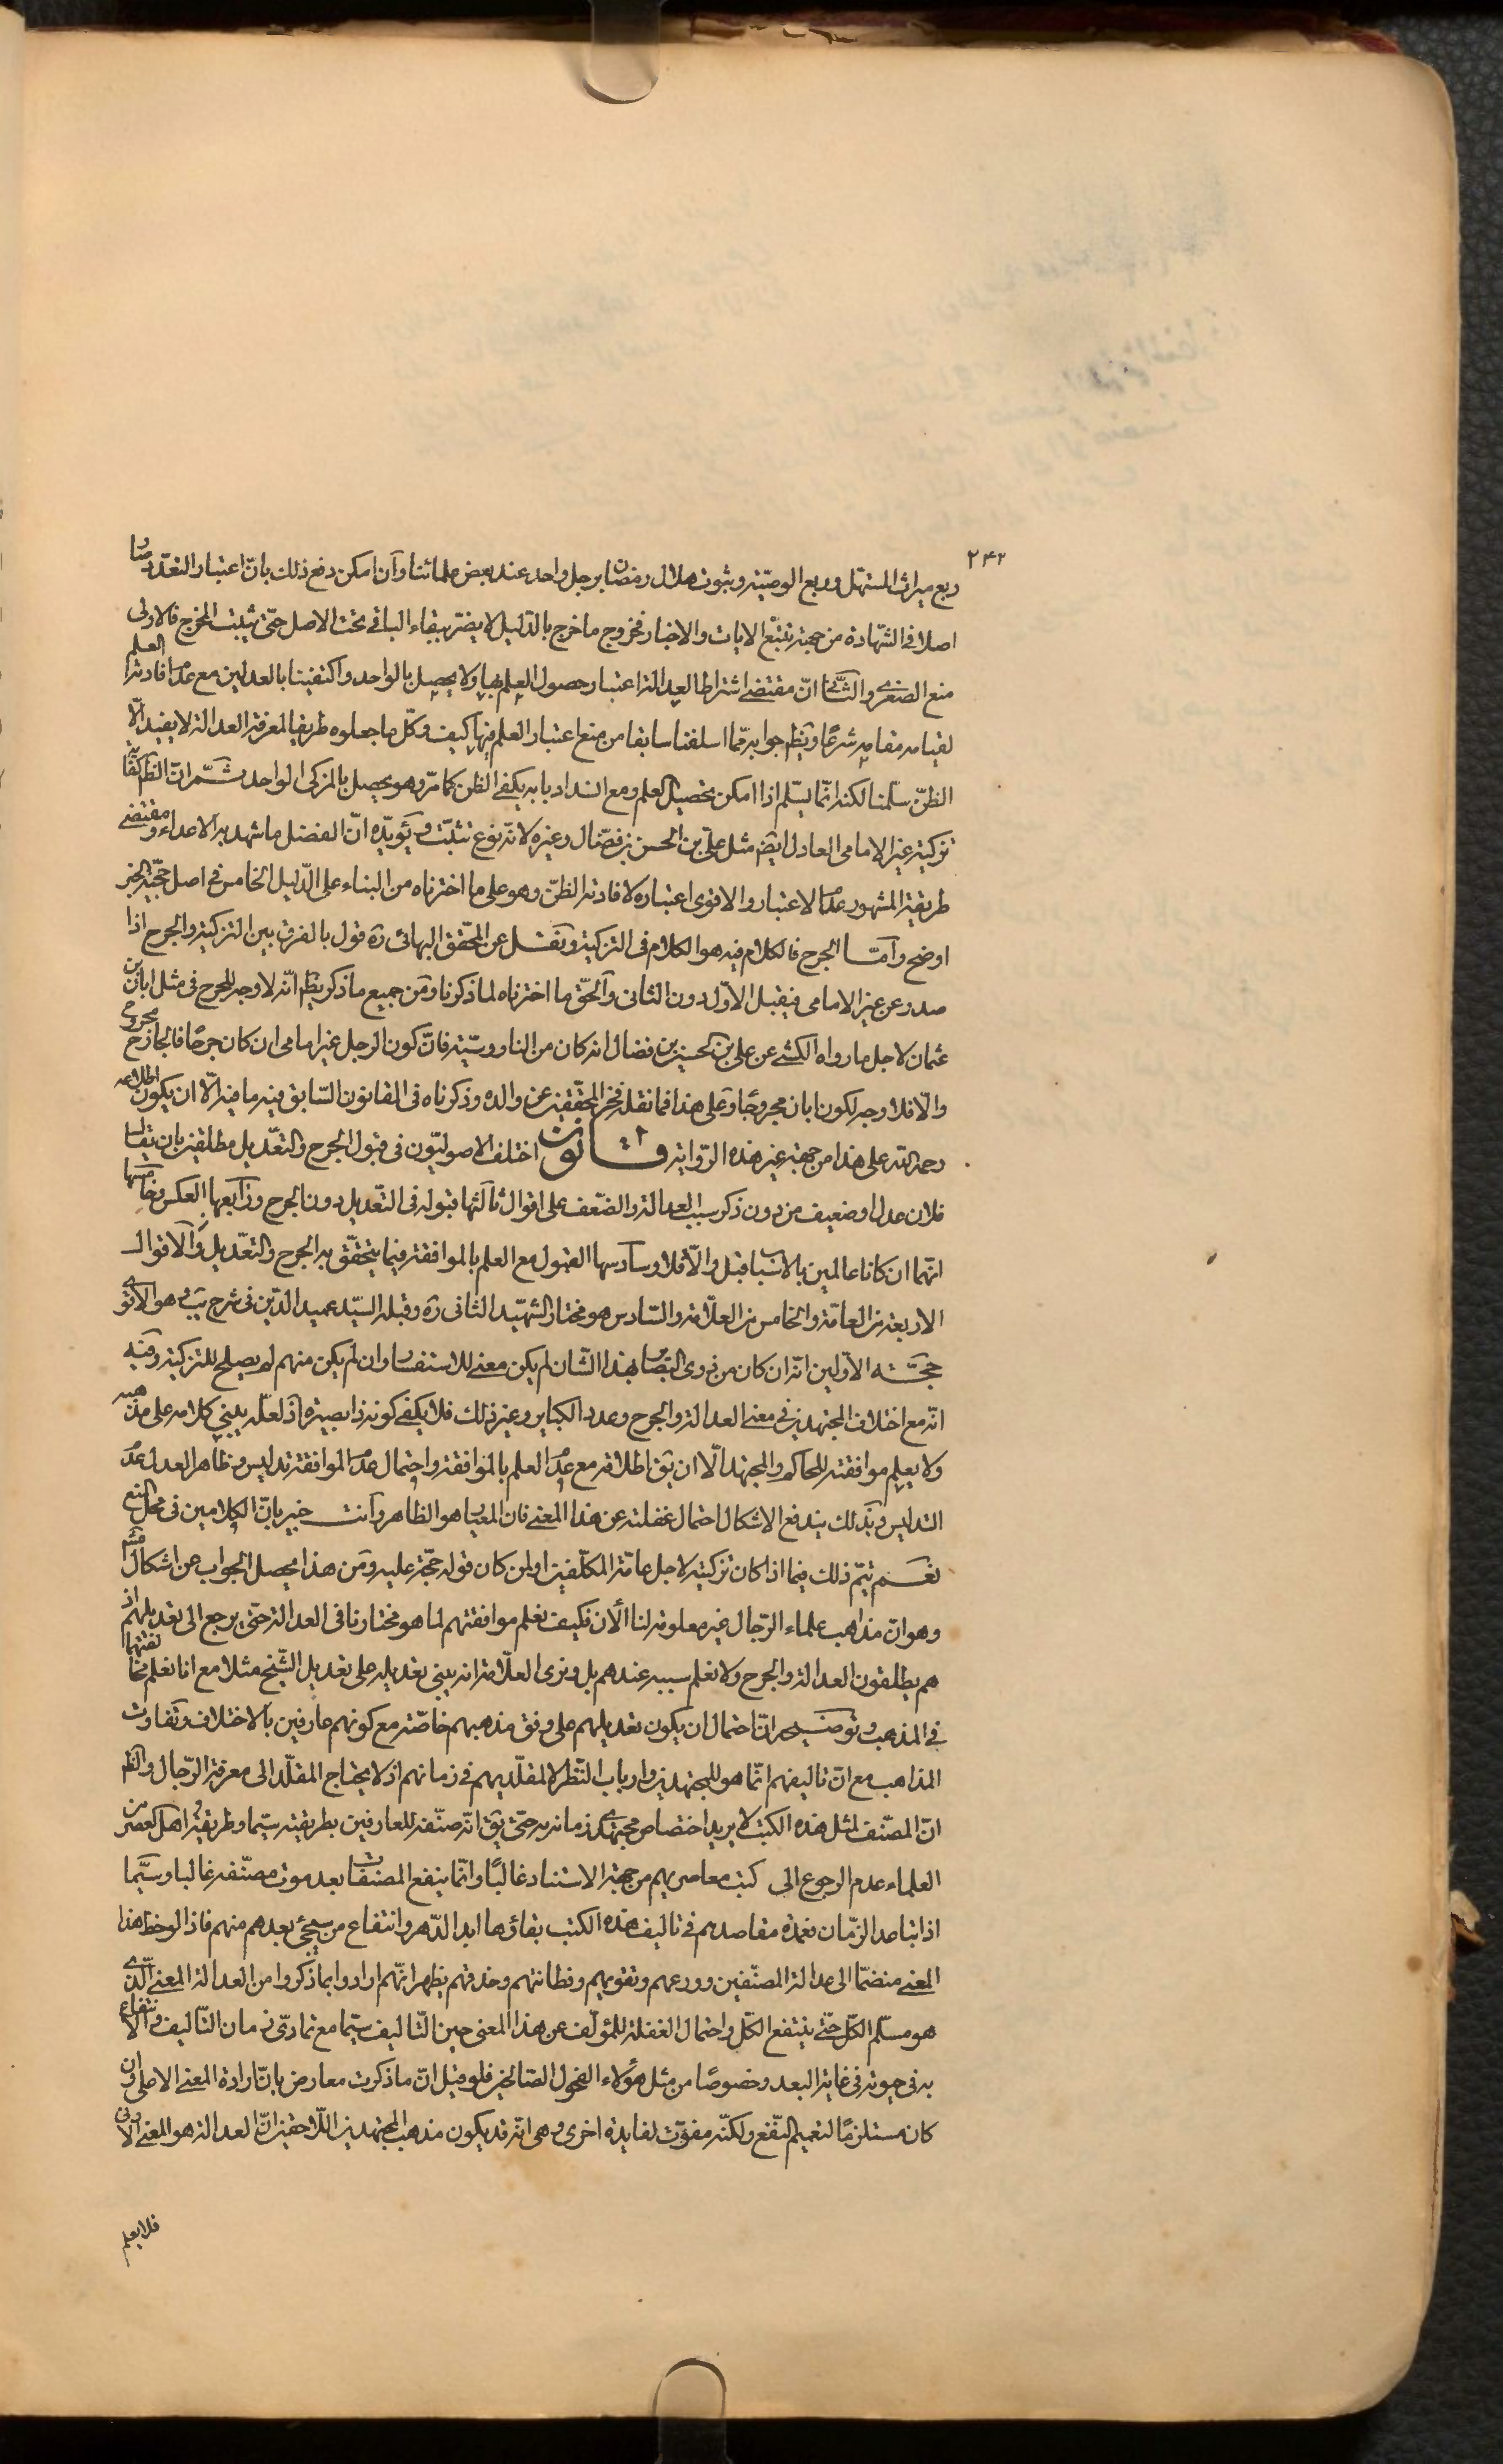 ٢٤٢
ربع ميراث المستهل وربع الوصيّة وثبوت هلال رمضان برجل واحد عند بعض علمائنا وآن امكن دفع ذلك بانّ اعتبار التعدّد صار
اصلا فى الشّهادة من جهة تتبّع الايات والاخبار فخروج ما خرج بالدّليل لا يضرّ ببقاء الباقى تحت الاصل حتّى يثبت المخرج فالاولى
منع الصغرى والثّانى انّ مقتضى اشتراط العدالة اعتبار حصول العلم بها ولا يحصل بالواحد واكتفينا بالعدلين مع عدم افادته العلم
لقيامه مقامه شرعًا ويظهر جوابه ممّا اسلفنا سابقا من منع اعتبار العلم فيها كيف وكلّ ما جعلوه طريقا لمعرفة العدالة لا يفيد الّا
الظنّ سلّمنا لكنه انّما يسلّم اذا امكن تحصيل العلم ومع انسداد بابه يكفى الظن كما مرّ وهو يحصل بالمزكى الواحد ثمّ انّ الظاهر كفاية
تزكية غير الامامى العادل ايضا مثل علىّ بن الحسن بن فضّال وغيره لانّه نوع تثبّت ويؤيّده انّ الفضل ما شهد به الاعداء ومقتضى
طريقة المشهور عدم الاعتبار والاقوى اعتباره لافادته الظنّ وهو على ما اخترناه من البناء على الدّليل الخامس فى اصل حجيّة الخبر
اوضح وآمّا الجرح فالكلام فيه هو الكلام فى التزكية ونقل عن المحقّق البهائى ره قول بالفرق بين التزكية والجرح اذا
صدر عن غير الامامى فيقبل الاوّل دون الثانى وآلحقّ ما اخترناه لما ذكرنا ومن جميع ما ذكر يظهر انّه لا وجه للجرح فى مثل ابان بن
عثمان لاجل ما رواه الكشى عن على بن الحسين بن فضال انه كان من الناووسيّة فانّ كون الرجل غير امامى ان كان جرحًا فالجارح مجروح
والّا فلا وجه لكون ابان مجروحًا وعلى هذا فما نقله فخر المحقّقين عن والده وذكرناه فى القانون السّابق فيه ما فيه الّا ان يكون اطلاعه
رحمه الله على هذا من جهة غير هذه الرّواية قانون اختلف الاصوليّون فى قبول الجرح والتعّديل مطلقين بان يقال
فلان عدل او ضعيف من دون ذكر سبب العدالة والضّعف على اقوال ثآلثها قبوله فى التّعديل دون الجرح ورآبعها العكس وخامسها
انّهما ان كانا عالمين بالاسباب قبل والّا فلا وسآدسها القبول مع العلم بالموافقة فيما يتحقّق به الجرح والتعّديل وآلاقوال
الاربعة من العامّة والخامس من العلّامة والسّادس هو مختار الشّهيد الثانى ره وقبله السيّد عميد الدّين فى شرح يب وهو الاقوى
حجّة الاوّلين انّه ان كان من ذوى البصائر بهذا الشّان لم يكن معنى للاستفسار وان لم يكن منهم لم يصلح للتزكية وفيه
انّه مع اختلاف المجتهدين فى معنى العدالة والجرح وعدد الكباير وغير ذلك فلا يكفى كونه ذا بصيرة اذ لعلّه يبنى كلامه على مذهبه
ولا يعلم موافقته للحاكم والمجتهد الّا ان يق اطلاقه مع عدم العلم بالموافقة واحتمال عدم الموافقة تدليس وظاهر العدل عدم
التدليس وبذلك يندفع الاشكال احتمال غفلته عن هذا المعنى فان المعيار هو الظاهر وآنت خبير بانّ الكلامين فى محلّ المنع
نعم يتمّ ذلك فيما اذا كان تزكيته لاجل عامّة المكلّفين او لمن كان قوله حجّة عليه ومن هذا يحصل الجواب عن اشكال مشهور
وهو انّ مذاهب علماء الرّجال غير معلومة لنا الٔان فكيف نعلم موافقتهم لما هو مختارنا فى العدالة حتّى يرجع الى تعديلهم اذ
هم يطلقون العدالة والجرح ولا نعلم سببه عندهم بل ونرى العلّامة انه يبنى تعديله على تعديل الشّيخ مثلا مع انا نعلم مخالفتهما
فى المذهب وتوضيحه انّ احتمال ان يكون تعديلهم على وفق مذهبهم خاصّة مع كونهم عارفين بالاختلاف وتفاوت
المذاهب مع انّ تاليفهم انّما هو للمجتهدين وارباب النّظر لا لمقلّديهم فى زمانهم اذ لا يحتاج المقلّد الى معرفة الرّجال والظاهر
انّ المصنّف لمثل هذه الكتب لا يريد اختصاص مجتهدى زمانه به حتّى يق انّه صنّفه للعارفين بطريقته سيّما وطريقة اهل العصر من
العلماء عدم الرجوع الى كتب معاصريهم من جهة الاستناد غالبًا وانّما ينفع المصنّفات بعد موت مصنّفه غالبا وسيّما
اذا تباعد الزّمان فعمدة مقاصدهم فى تاليف هذه الكتب بقاؤها ابد الدّهر وانتفاع من سيجئ بعدهم منهم فاذا لوحظ هذا
المعنى منضمّا الى عدالة المصنّفين وورعهم وتقويهم وفطانتهم وحذقهم يظهر انّهم ارادوا بما ذكروا من العدالة المعنى الّذى
هو مسلّم الكلّ حتّى ينتفع الكلّ واحتمال الغفلة للمؤلّف عن هذا المعنى حين التّاليف سيّما مع تمادّى زمان التّاليف والانتفاع
به فى حيوته فى غاية البعد وخصوصًا من مثل هؤلاء الفحول الصّالحين فلو قيل انّ ما ذكرت معارض بانّ ارادة المعنى الاعلى وان
كان مستلزمًا لتعميم النّفع ولكنّه مفوّت لفايدة اخرى وهى انّه قد يكون مذهب المجتهدين اللّاحقين انّ العدالة هو المعنى الادنى
فلا يعلم